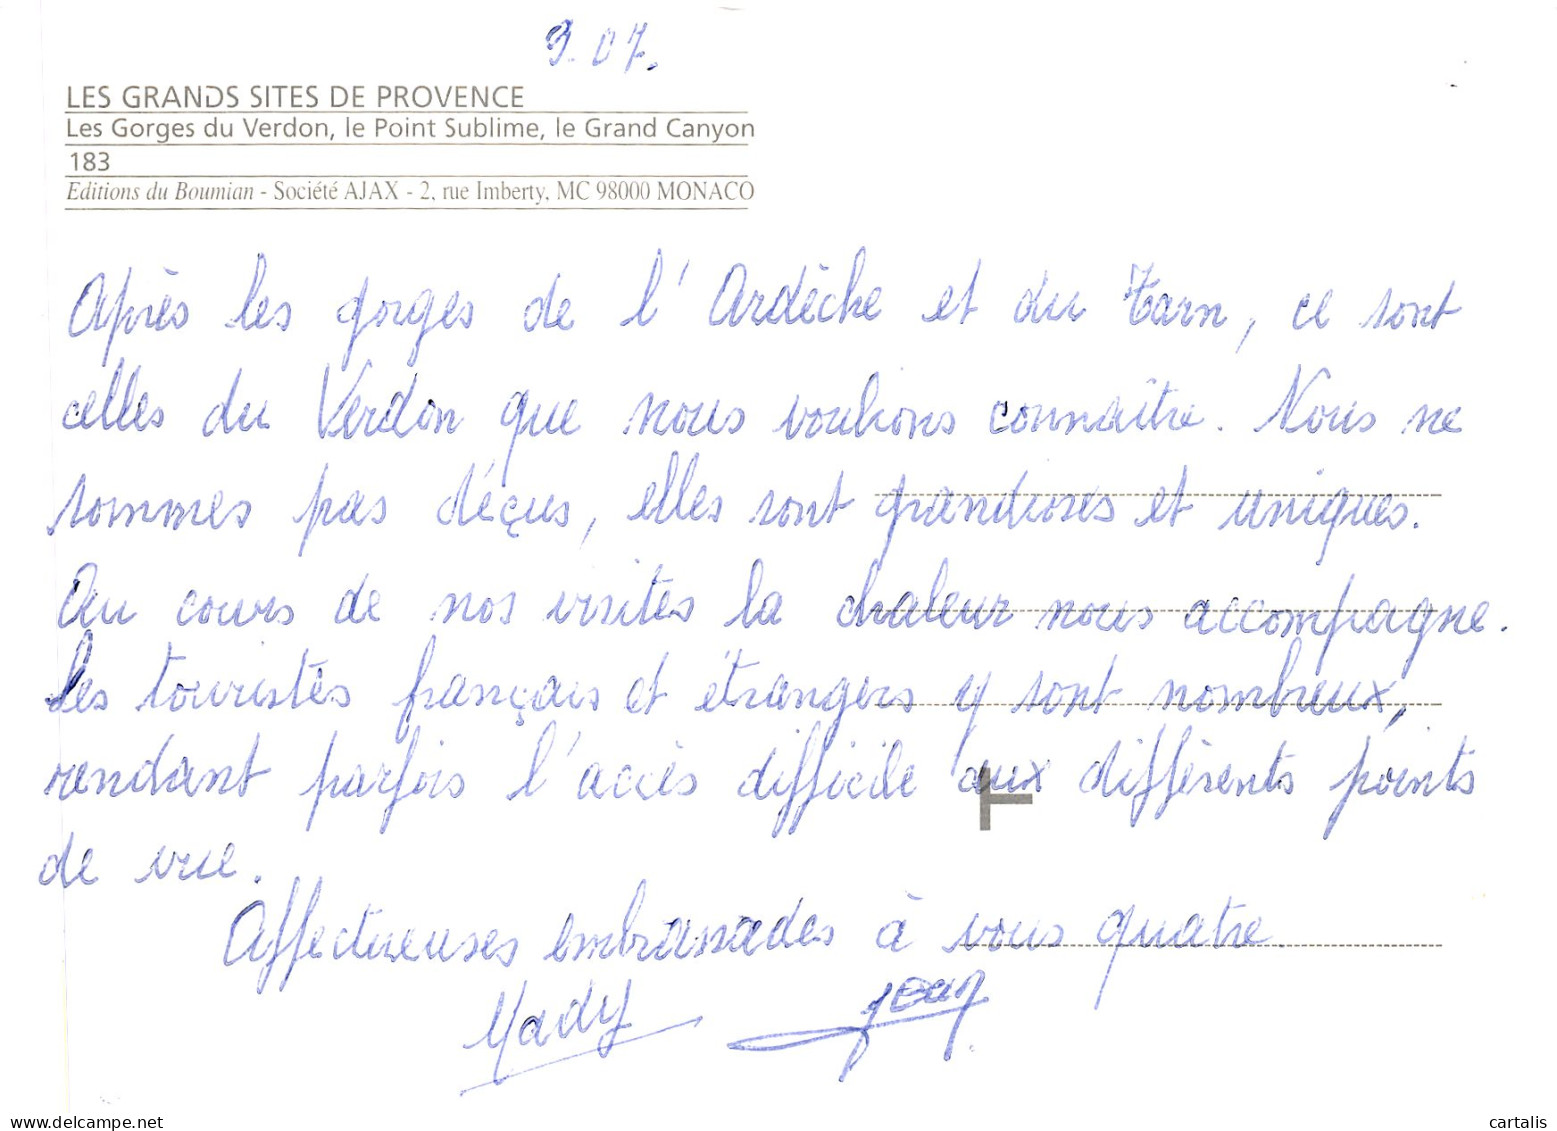 9.07.
LES GRANDS SITES DE PROVENCE
Les Gorges du Verdon, le Point Sublime, le Grand Canyon
183
Editions du Boumian - Société AJAX - 2, rue Imberty, MC 98000 MONACO
Après les gorges de l'Ardèche et du Tarn, ce sont
celles du Verdon que nous voulions connaître. Nous ne
sommes pas déçus, elles sont grandioses et uniques.
Au cours de nos visites la chaleur nous accompagne.
Les touristes français et étrangers y sont nombreux,
rendant parfois l'accès difficile aux différents points
de vue.
Affectueuses embrassades à vous quatre.
Mady Jean
delcampe.net
cartalis